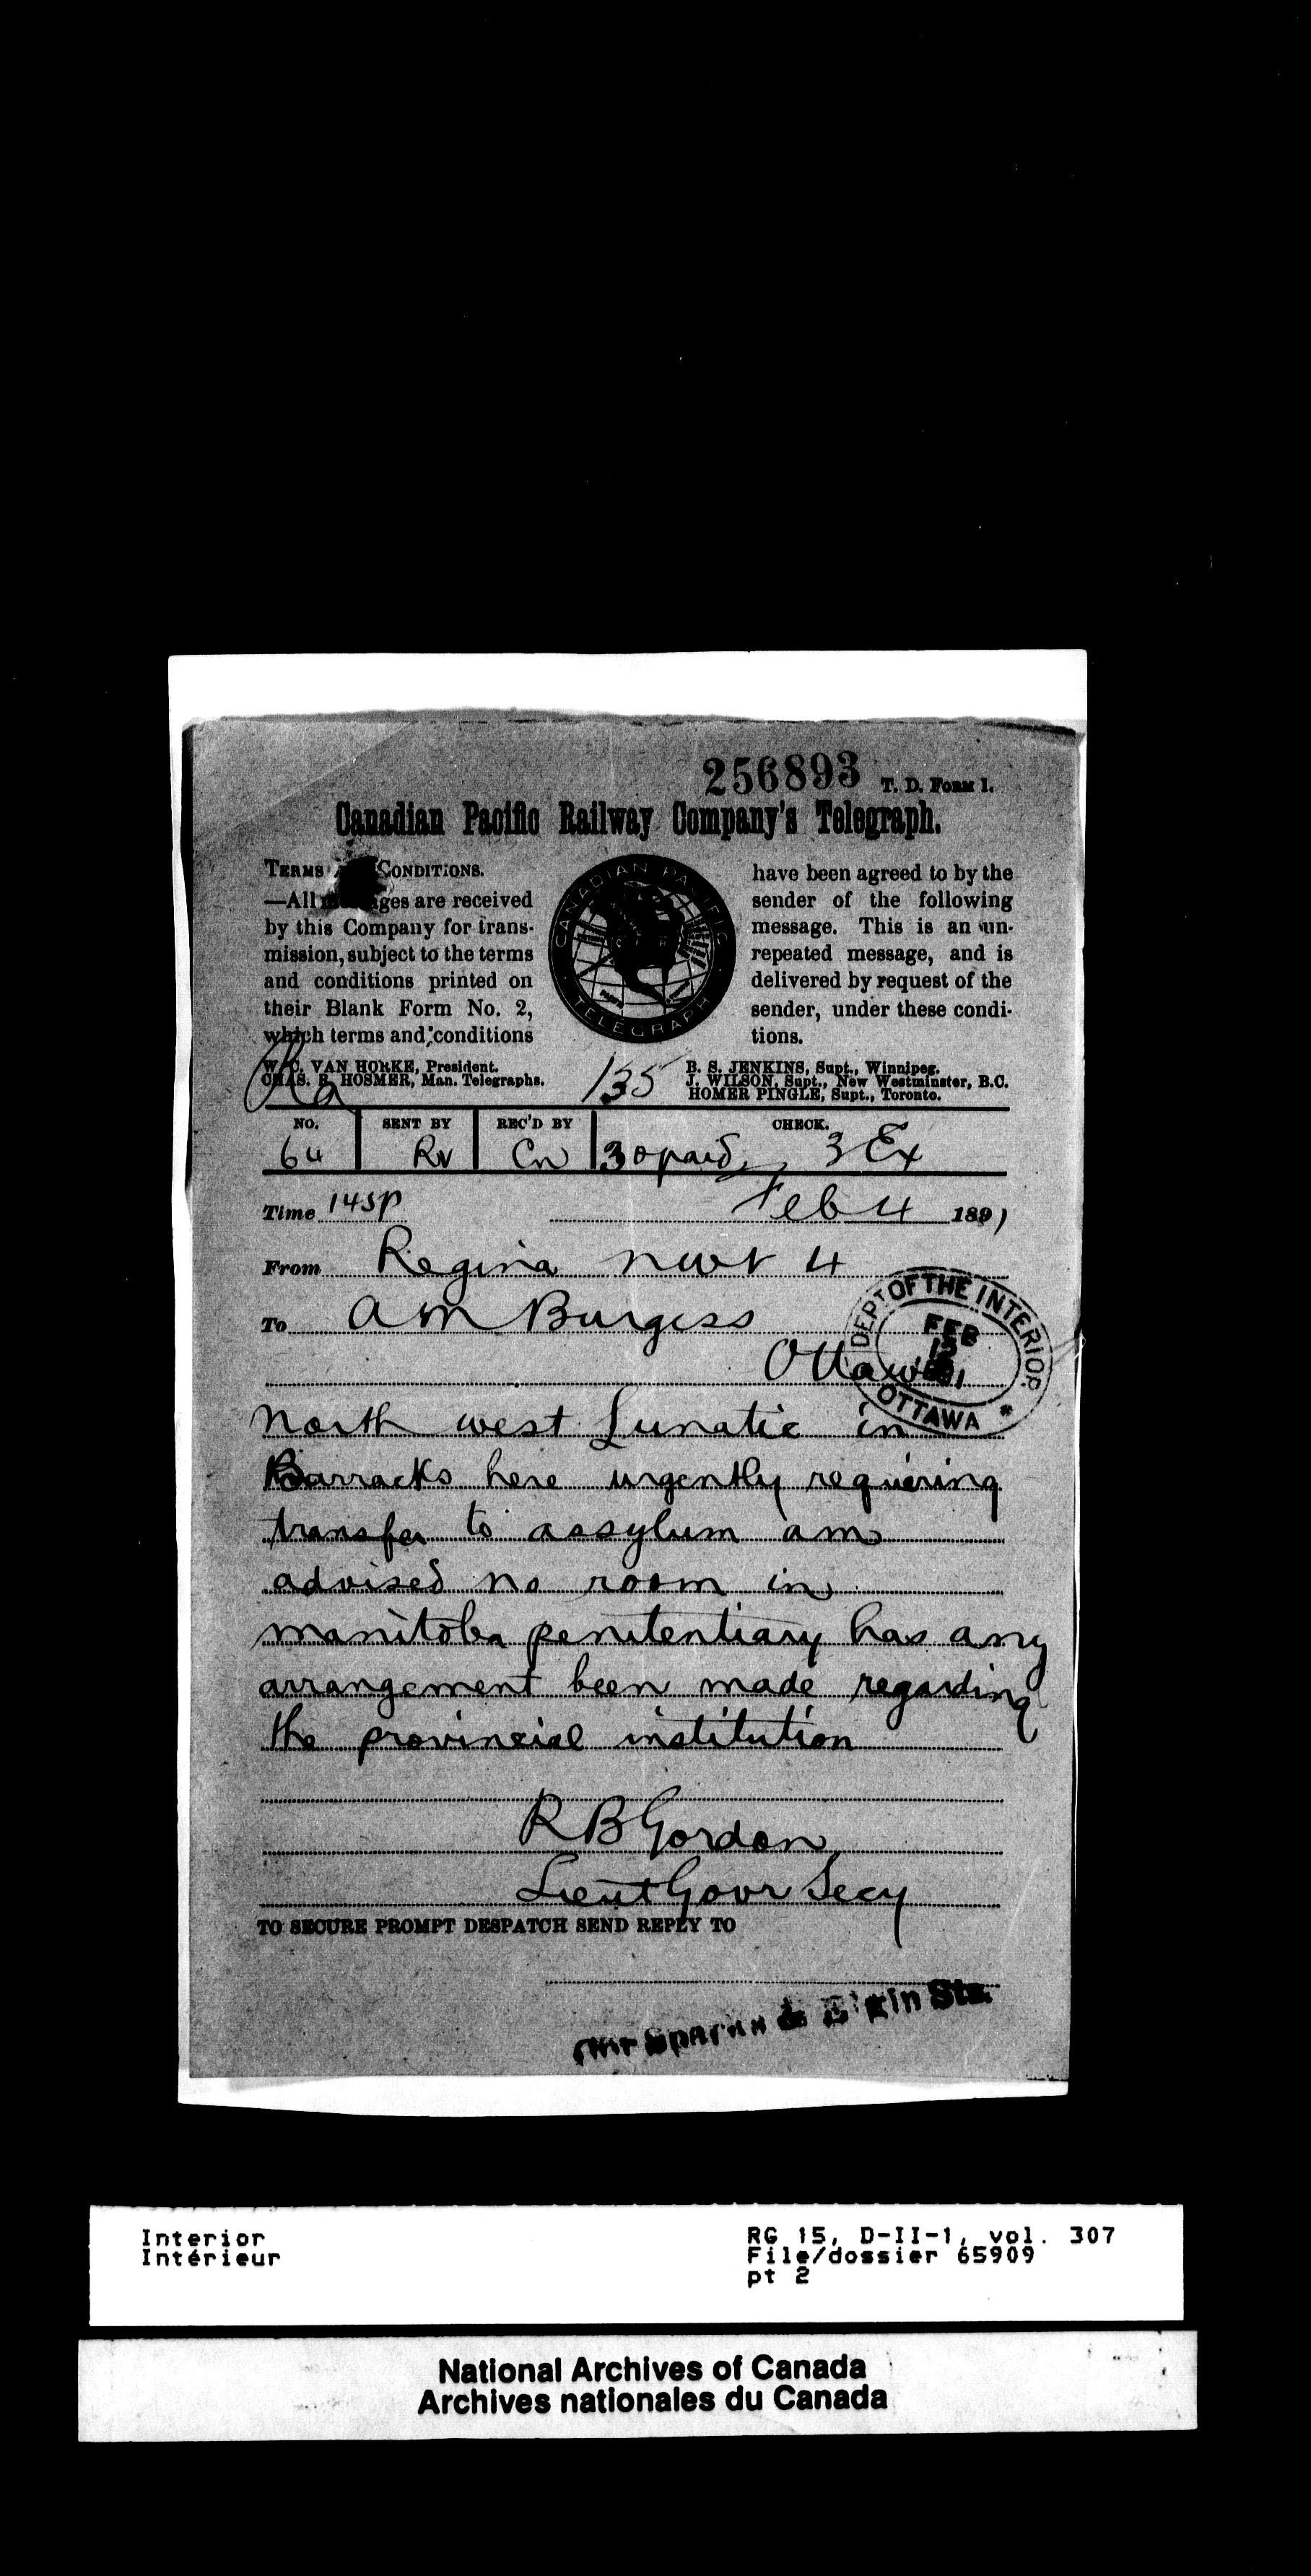 256893 T. D. FORM 1.
Canadian Pacific Railway Company's Telegraph.
TERMS CONDITIONS.
—All ges are received
by this Company for trans-
mission, subject to the terms
and conditions printed on
their Blank Form No. 2,
which terms and conditions
CANADIAN PACIFIC
TELEGRAPH
have been agreed to by the
sender of the following
message. This is an un-
repeated message, and is
delivered by request of the
sender, under these condi-
tions.
W. C. VAN HORKE, President.
CHAS. R. HOSMER, Man. Telegraphs.
135
B. S. JENKINS, Supt., Winnipeg.
J. WILSON, Supt., New Westminster, B.C.
HOMER PINGLE, Supt., Toronto.
NO. SENT BY REC'D BY CHECK.
64 Rv Cn 30 paid 3 Ex
Time 145P Feb 4 1891
From Regina nwt 4
To A M Burgess
Ottawa
DEPT OF THE INTERIOR
FEB
1891
OTTAWA *
North west Lunatic in
Barracks here urgently requiring
transfer to assylum am
advised no room in
manitoba penitentiary has any
arrangement been made regarding
the provincial institution
R B Gordon
Lieut Govr Secy
TO SECURE PROMPT DESPATCH SEND REPLY TO
Cor Sparks & Elgin Sts.
Interior
Intérieur
RG 15, D-II-1, vol. 307
File/dossier 65909
pt 2
National Archives of Canada
Archives nationales du Canada